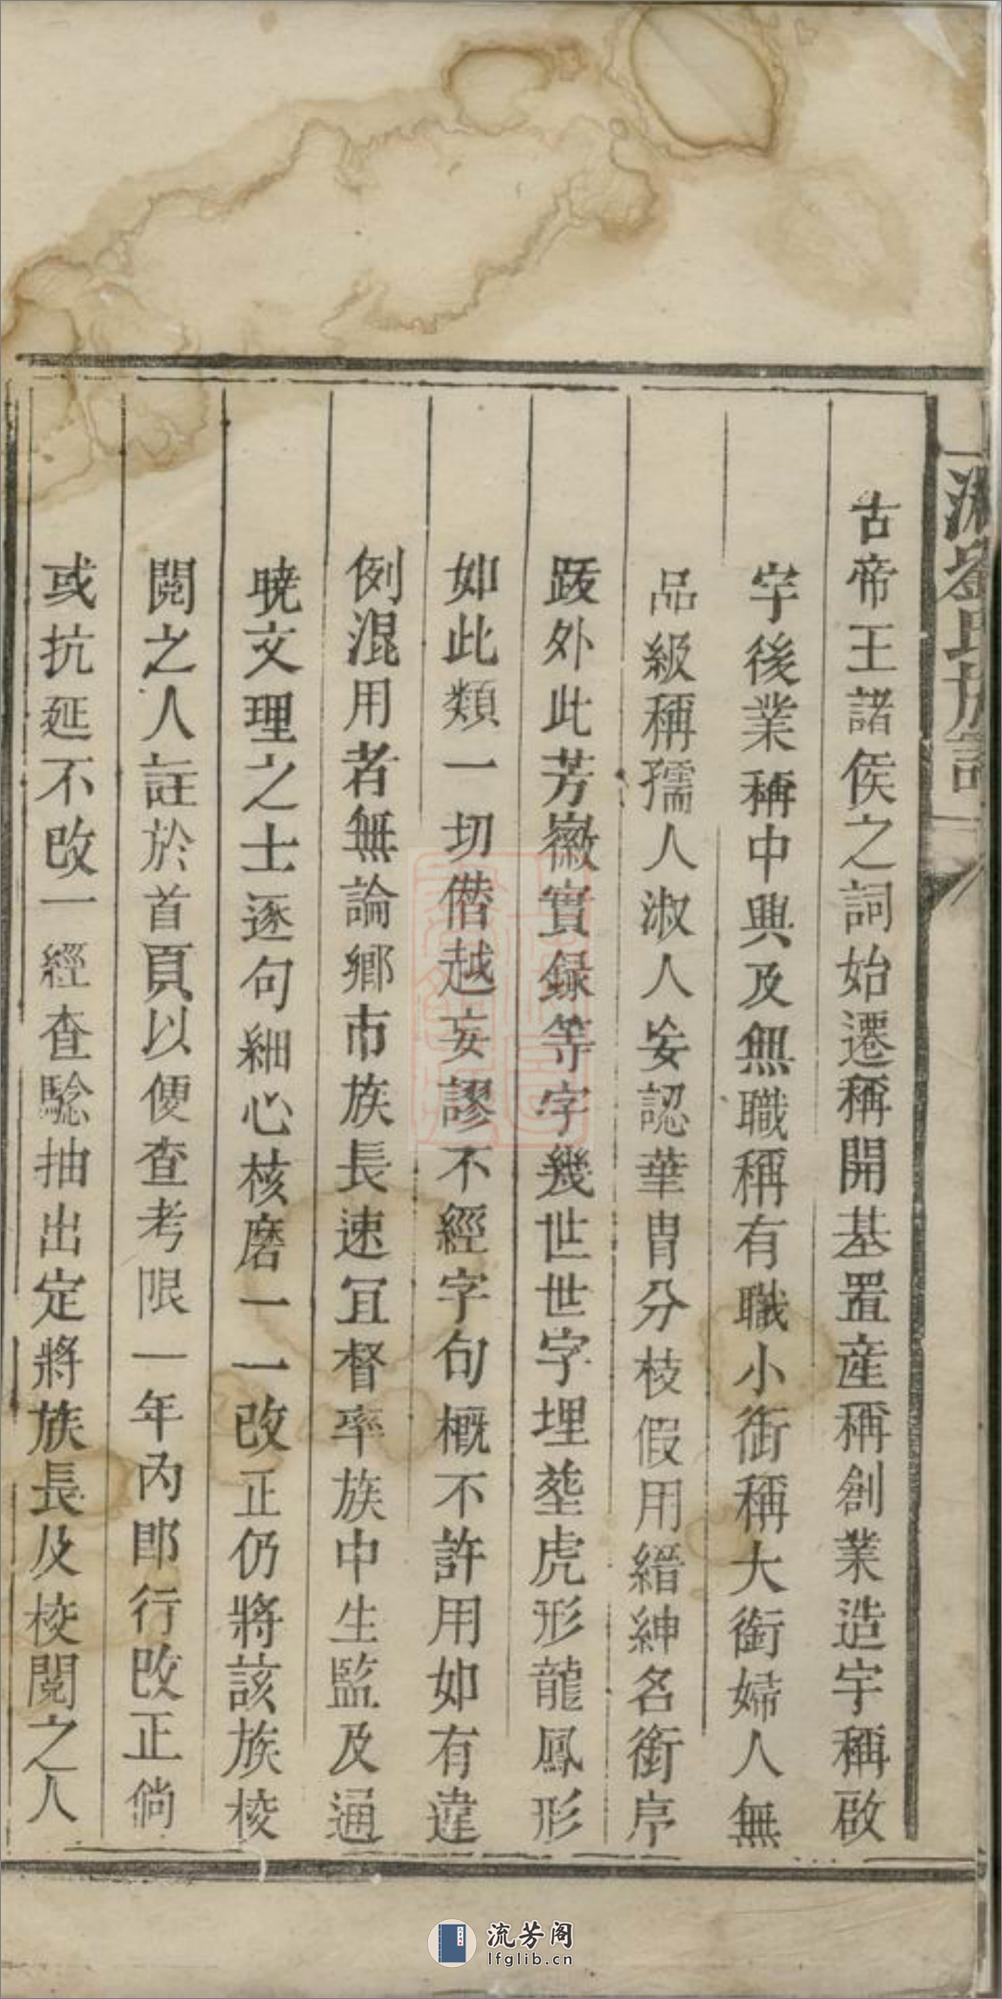 古帝王諸侯之詞始遷稱開基置産稱創業造宇稱啟
宇後業稱中興及無職稱有職小銜稱大銜婦人無
品級稱孺人淑人妄認華胄分枝假用縉紳名銜序
跋外此芳徽實録等字幾世世字埋塟虎形龍鳳形
如此類一切僭越妄謬不經字句概不許用如有違
例混用者無論鄉市族長速宜督率族中生監及通
曉文理之士逐句細心核磨一一改正仍將該族校
閱之人註於首頁以便查考限一年內即行改正倘
或抗延不改一經查驗抽出定將族長及校閱之人
流芳阁
lfglib.cn